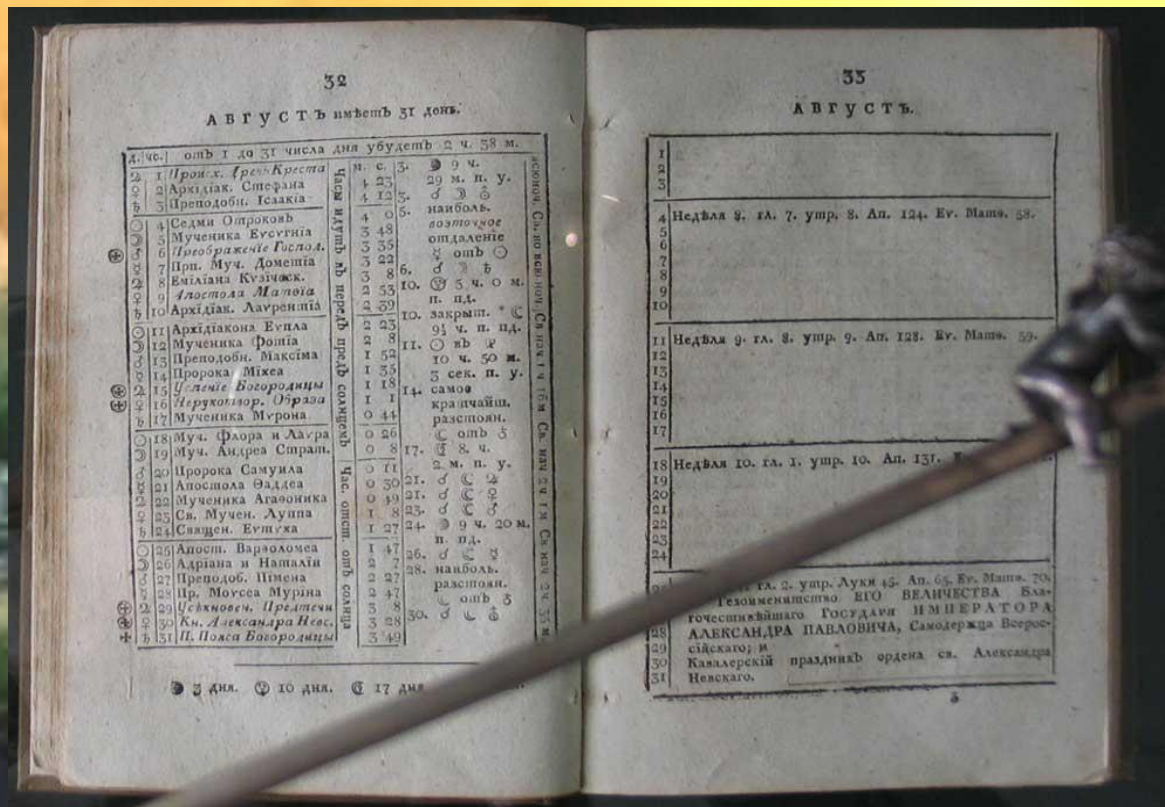 32
АВГУСТЪ имѣетъ 31 день.
д. чс. отъ 1 до 31 числа дня убудетъ 2 ч. 38 м.
♃ 1 Произх. Древ. Креста
♀ 2 Архідіак. Стефана
♄ 3 Преподобн. Ісаакіа
☉ 4 Седми Отроковъ
☽ 5 Мученика Еvсvгніа
♂ 6 Преображеніе Господ.
☿ 7 Прп. Муч. Дометіа
♃ 8 Еміліана Кvзіческ.
♀ 9 Апостола Матѳіа
♄ 10 Архідіак. Лаvрентіа
☉ 11 Архідіакона Еvпла
☽ 12 Мученика Фотіа
♂ 13 Преподобн. Максіма
☿ 14 Пророка Міхеа
♃ 15 Успеніе Богородицы
♀ 16 Нерукотвор. Образа
♄ 17 Мученика Мvрона
☉ 18 Муч. Флора и Лаvра
☽ 19 Муч. Андреа Страт.
♂ 20 Пророка Самуила
☿ 21 Апостола Ѳаддеа
♃ 22 Мученика Агаѳоника
♀ 23 Св. Мучен. Луппа
♄ 24 Священ. Еvтvха
☉ 25 Апост. Варѳоломеа
☽ 26 Адріана и Наталіи
♂ 27 Преподоб. Пімена
☿ 28 Пр. Моvсеа Муріна
♃ 29 Усѣкновен. Предтечи
♀ 30 Кн. Александра Невс.
♄ 31 П. Пояса Богородицы
Часы идутъ въ передъ предъ солнцемъ
Час. отст. отъ солнца
м. с.
4 23
4 12
4 0
3 48
3 35
3 22
3 8
2 53
2 39
2 23
2 8
1 52
1 35
1 18
1 1
0 44
0 26
0 8
0 11
0 30
0 49
1 8
1 27
1 47
2 7
2 27
2 47
3 8
3 28
3 49
3. 9 ч.
29 м. п. у.
3. ☌ ☽ ♁
5. наиболь.
возточное
отдаленіе
☿ отъ ☉
6. ☌ ☽ ♄
10. 3 ч. 0 м.
п. пд.
10. закрыт. * ☾
9½ ч. п. пд.
11. ☉ въ
10 ч. 50 м.
3 сек. п. у.
14. самое
кратчайш.
разстоян.
☾ отъ ♁
17. 8 ч.
2 м. п. у.
21. ☌ ☾ ♃
21. ☌ ☾ ♀
23. ☌ ☾ ♂
24. 9 ч. 20 м.
п. пд.
26. ☌ ☾ ☿
28. наиболь.
разстоян.
☾ отъ ♁
30. ☌ ☾
3 дня. 10 дня. 17 дня
33
АВГУСТЪ.
1
2
3
4 Недѣля 8. гл. 7. утр. 8. Ап. 124. Еv. Матѳ. 58.
5
6
7
8
9
10
11 Недѣля 9. гл. 8. утр. 9. Ап. 128. Еv. Матѳ. 59.
12
13
14
15
16
17
18 Недѣля 10. гл. 1. утр. 10. Ап. 131.
19
20
21
22
23
24
гл. 2. утр. Луки 45. Ап. 65. Еv. Матѳ. 70.
Тезоименитство ЕГО ВЕЛИЧЕСТВА Бла-
гочестивѣйшаго ГОСУДАРЯ ИМПЕРАТОРА
28 АЛЕКСАНДРА ПАВЛОВИЧА, Самодержца Всерос-
29 сійскаго; и
30 Кавалерскій праздникъ ордена св. Александра
31 Невскаго.